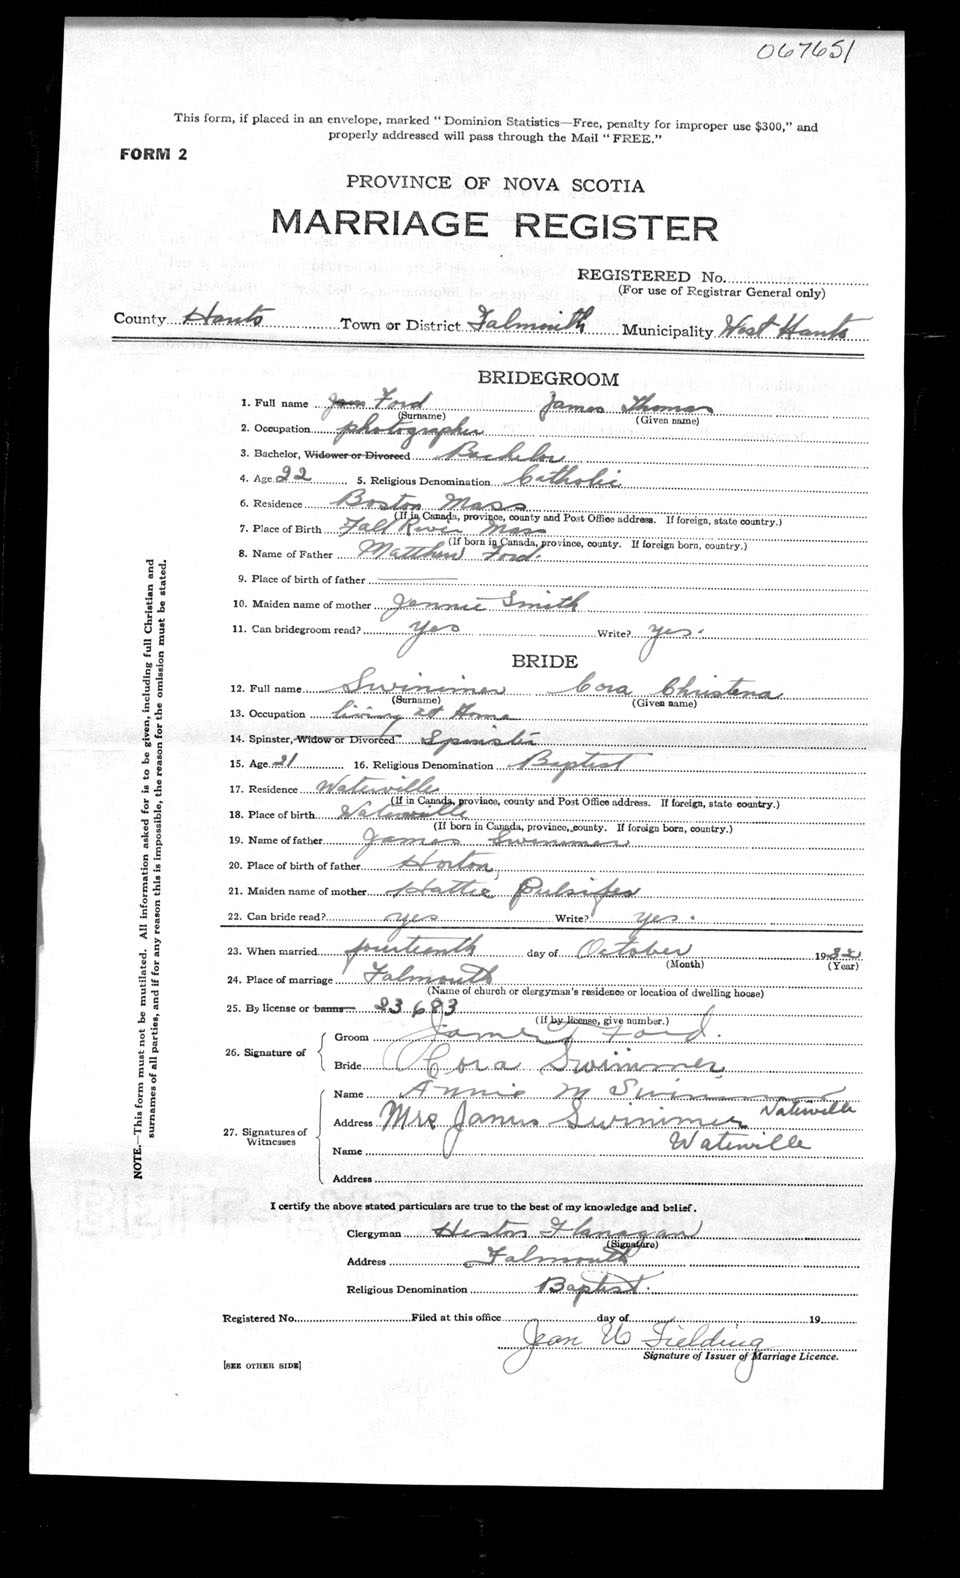 067651
This form, if placed in an envelope, marked "Dominion Statistics—Free, penalty for improper use $300," and
properly addressed will pass through the Mail "FREE."
FORM 2
PROVINCE OF NOVA SCOTIA
MARRIAGE REGISTER
REGISTERED No.
(For use of Registrar General only)
County Hants Town or District Falmouth Municipality West Hants
BRIDEGROOM
1. Full name Jam Ford James Thomas
(Surname) (Given name)
2. Occupation photographer
3. Bachelor, Widower or Divorced Bachelor
4. Age 22 5. Religious Denomination Catholic
6. Residence Boston Mass
(If in Canada, province, county and Post Office address. If foreign, state country.)
7. Place of Birth Fall River Mass
(If born in Canada, province, county. If foreign born, country.)
8. Name of Father Matthew Ford.
9. Place of birth of father
10. Maiden name of mother Jennie Smith
11. Can bridegroom read? yes Write? yes.
BRIDE
12. Full name Swinimer Cora Christena
(Surname) (Given name)
13. Occupation living at Home
14. Spinster, Widow or Divorced Spinster
15. Age 21 16. Religious Denomination Baptist
17. Residence Waterville
(If in Canada, province, county and Post Office address. If foreign, state country.)
18. Place of birth Waterville
(If born in Canada, province, county. If foreign born, country.)
19. Name of father James Swinimer
20. Place of birth of father Horton,
21. Maiden name of mother Hattie Pulsifer
22. Can bride read? yes Write? yes.
23. When married fourteenth day of October 1932
(Month) (Year)
24. Place of marriage Falmouth
(Name of church or clergyman's residence or location of dwelling house)
25. By license or banns 23683
(If by license, give number.)
26. Signature of
Groom James Ford.
Bride Cora Swinimer
27. Signatures of Witnesses
Name Annie M Swinimer
Waterville
Address Mrs James Swinimer
Waterville
Name
Address
I certify the above stated particulars are true to the best of my knowledge and belief.
Clergyman Flanagan
(Signature)
Address Falmouth
Religious Denomination Baptist.
Registered No. Filed at this office day of 19
Jean W Fielding
Signature of Issuer of Marriage Licence.
[SEE OTHER SIDE]
NOTE.—This form must not be mutilated. All information asked for is to be given, including full Christian and
surnames of all parties, and if for any reason this is impossible, the reason for the omission must be stated.